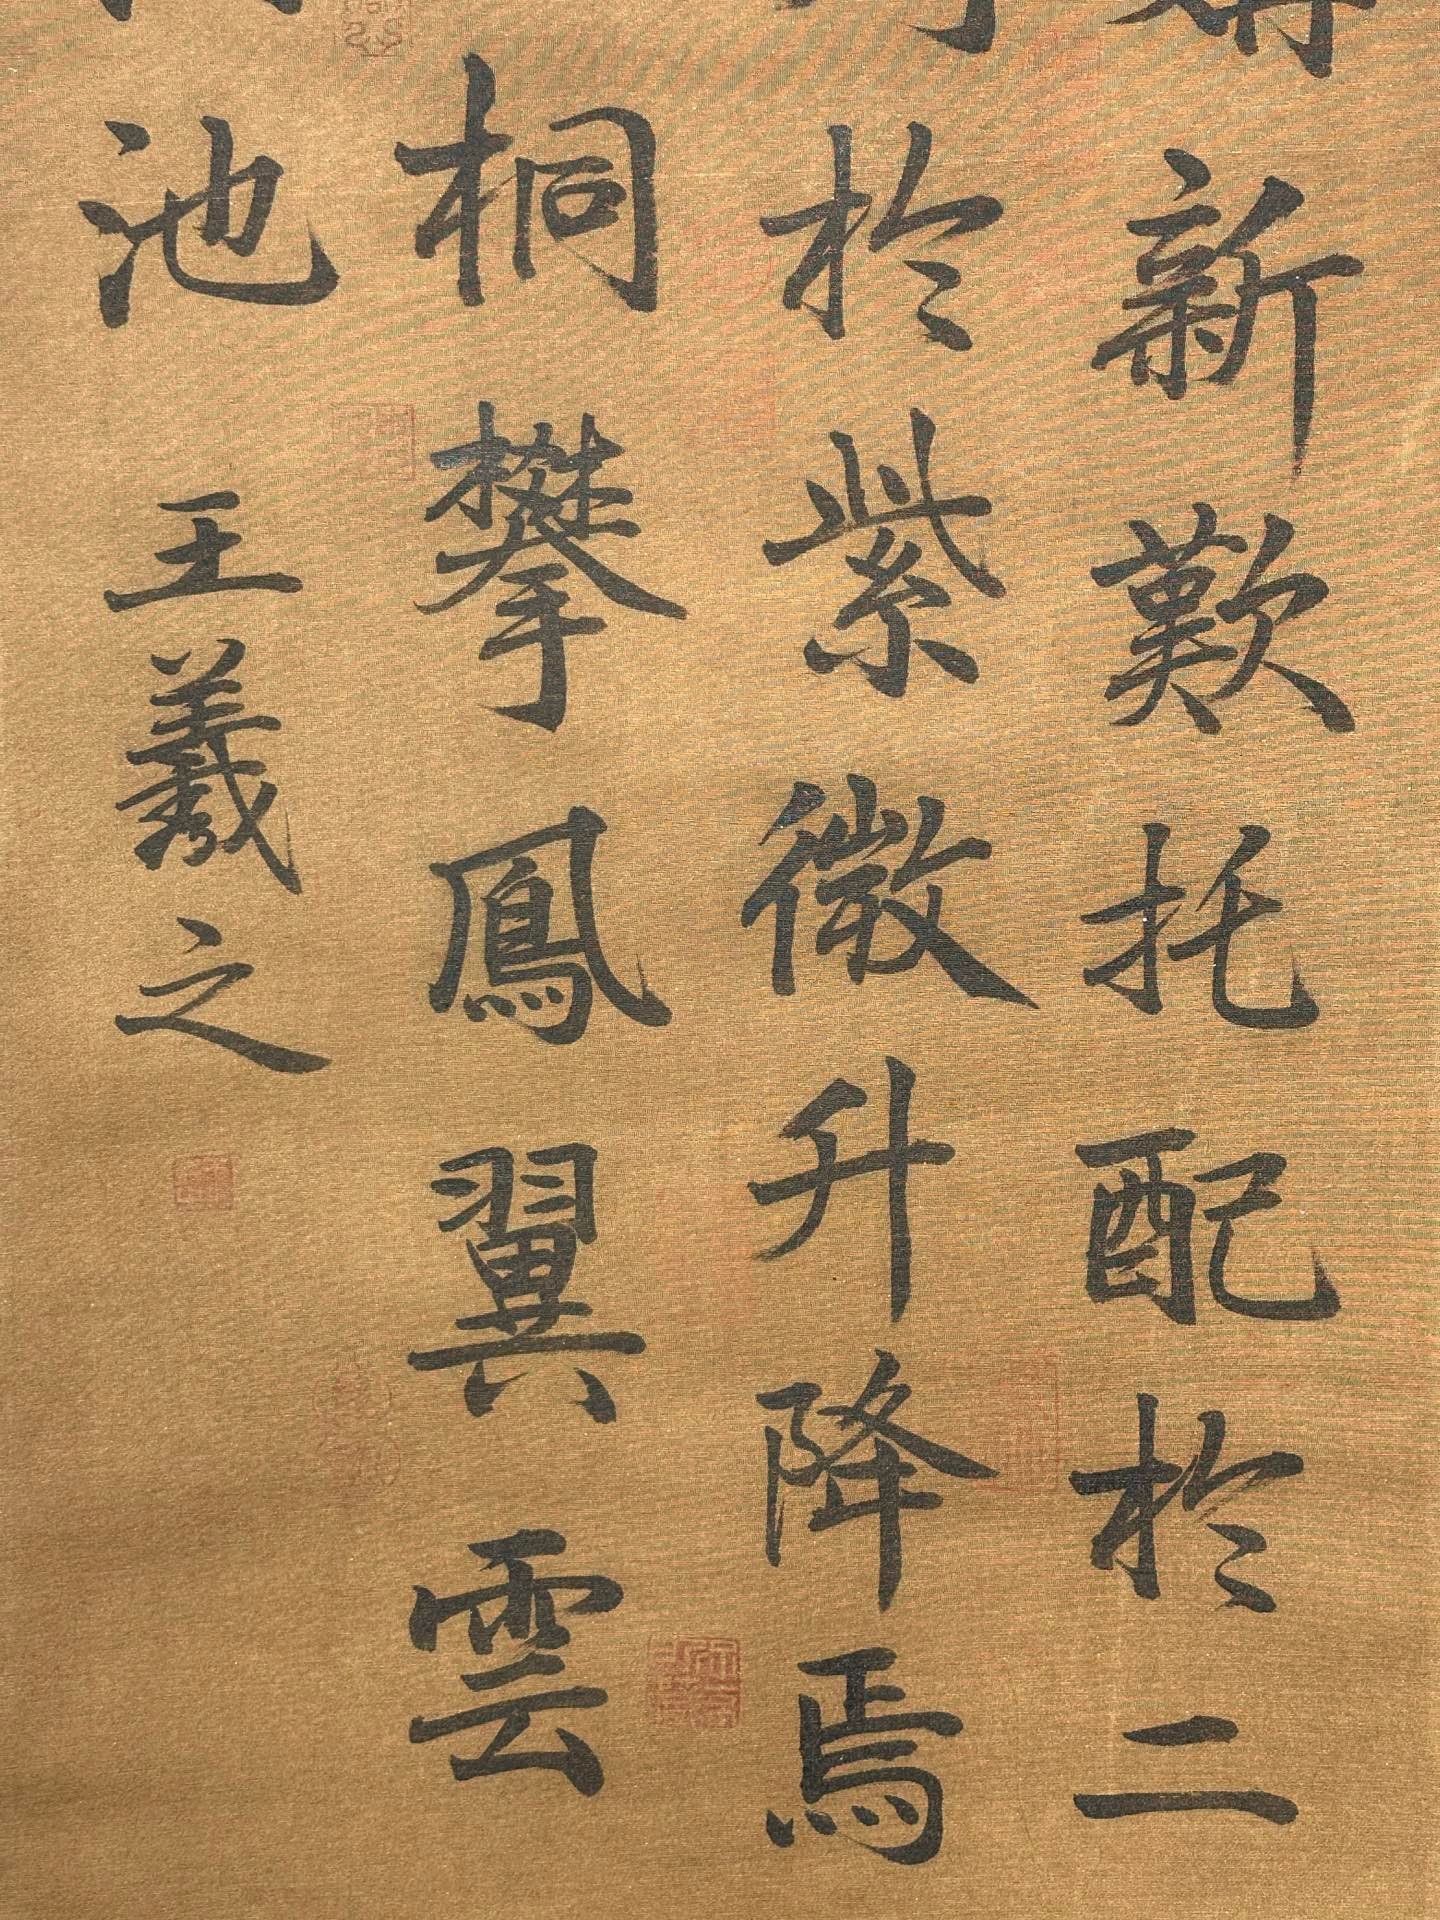 新歎托配於二
於紫微升降焉
桐攀鳳翼雲
池
王羲之